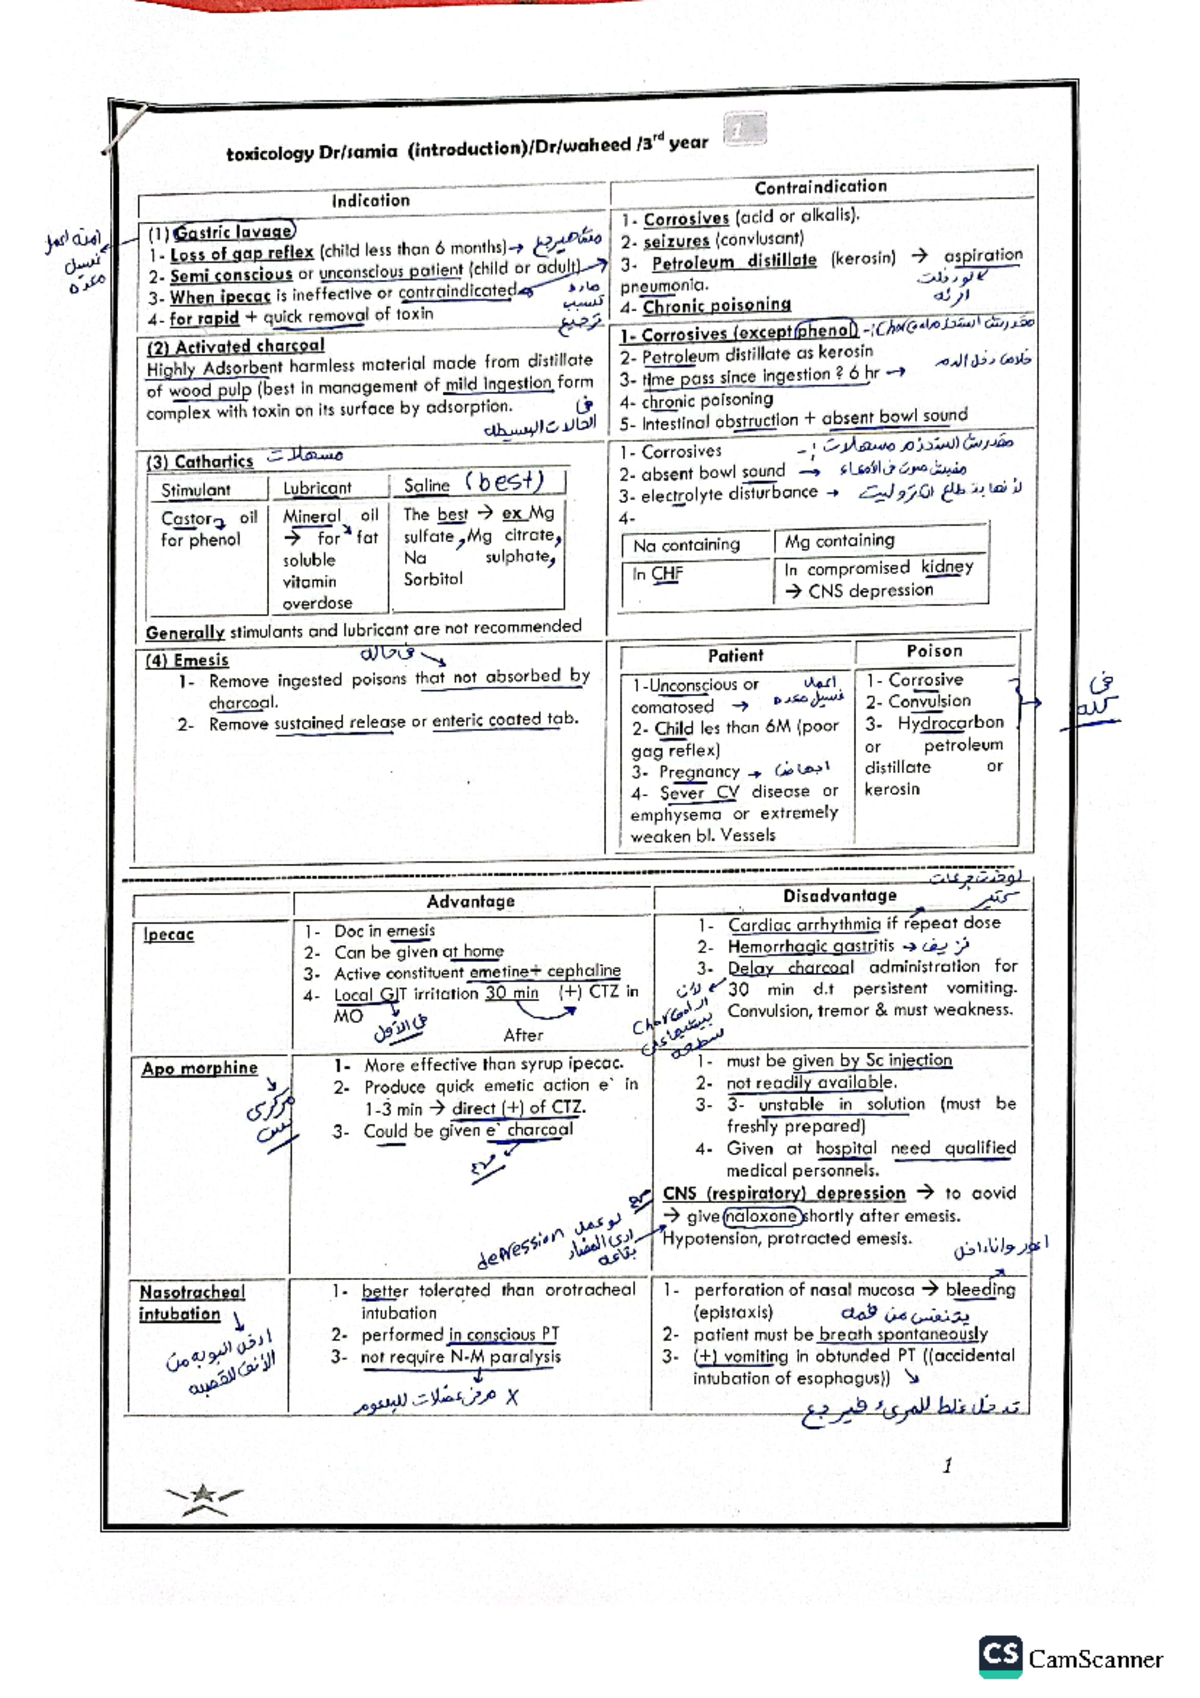 toxicology Dr/samia (introduction)/Dr/waheed /3rd year
1
Indication
Contraindication
(1) Gastric lavage
1- Loss of gap reflex (child less than 6 months)→
2- Semi conscious or unconscious patient (child or adult)
3- When ipecac is ineffective or contraindicated
4- for rapid + quick removal of toxin
امتى اعمل
غسيل
معده
مادة
تسبب
ترجيع
1- Corrosives (acid or alkalis).
2- seizures (convlusant)
3- Petroleum distillate (kerosin) → aspiration
pneumonia.
4- Chronic poisoning
(2) Activated charcoal
Highly Adsorbent harmless material made from distillate
of wood pulp (best in management of mild Ingestion form
complex with toxin on its surface by adsorption.
فى
الحالات البسيطه
1- Corrosives (except phenol)
2- Petroleum distillate as kerosin
3- time pass since ingestion ? 6 hr →
خلاص دخل الدم
4- chronic poisoning
5- Intestinal obstruction + absent bowl sound
(3) Cathartics مسهلات
Stimulant
Lubricant
Saline (best)
Castor oil
for phenol
Mineral oil
→ for fat
soluble
vitamin
overdose
The best → ex Mg
sulfate, Mg citrate,
Na sulphate,
Sorbitol
Generally stimulants and lubricant are not recommended
1- Corrosives
2- absent bowl sound → مفيش صوت فى الأمعاء
3- electrolyte disturbance →
4-
Na containing
Mg containing
In CHF
In compromised kidney
→ CNS depression
(4) Emesis
فى حاله
1- Remove ingested poisons that not absorbed by
charcoal.
2- Remove sustained release or enteric coated tab.
Patient
Poison
1-Unconscious or
comatosed →
اعمل
غسيل معده
2- Child les than 6M (poor
gag reflex)
3- Pregnancy →
4- Sever CV disease or
emphysema or extremely
weaken bl. Vessels
1- Corrosive
2- Convulsion
3- Hydrocarbon
or petroleum
distillate or
kerosin
فى
كله
Advantage
Disadvantage
Ipecac
1- Doc in emesis
2- Can be given at home
3- Active constituent emetine+ cephaline
4- Local GIT irritation 30 min (+) CTZ in
MO
فى الأول
After
1- Cardiac arrhythmia if repeat dose
2- Hemorrhagic gastritis → نزيف
3- Delay charcoal administration for
30 min d.t persistent vomiting.
Convulsion, tremor & must weakness.
لان
Charcoal
Apo morphine
مركزى
بس
1- More effective than syrup ipecac.
2- Produce quick emetic action e` in
1-3 min → direct (+) of CTZ.
3- Could be given e` charcoal
مع
1- must be given by Sc injection
2- not readily available.
3- 3- unstable in solution (must be
freshly prepared)
4- Given at hospital need qualified
medical personnels.
CNS (respiratory) depression → to aovid
→ give naloxone shortly after emesis.
Hypotension, protracted emesis.
لو عمل depression
ادى المضاد
بتاعه
Nasotracheal
intubation
ادخل انبوبه من
الأنف للقصبه
1- better tolerated than orotracheal
intubation
2- performed in conscious PT
3- not require N-M paralysis
1- perforation of nasal mucosa → bleeding
(epistaxis)
يتنفس من فمه
2- patient must be breath spontaneously
3- (+) vomiting in obtunded PT ((accidental
intubation of esophagus))
تدخل غلط للمرىء فيرجع
1
CS CamScanner